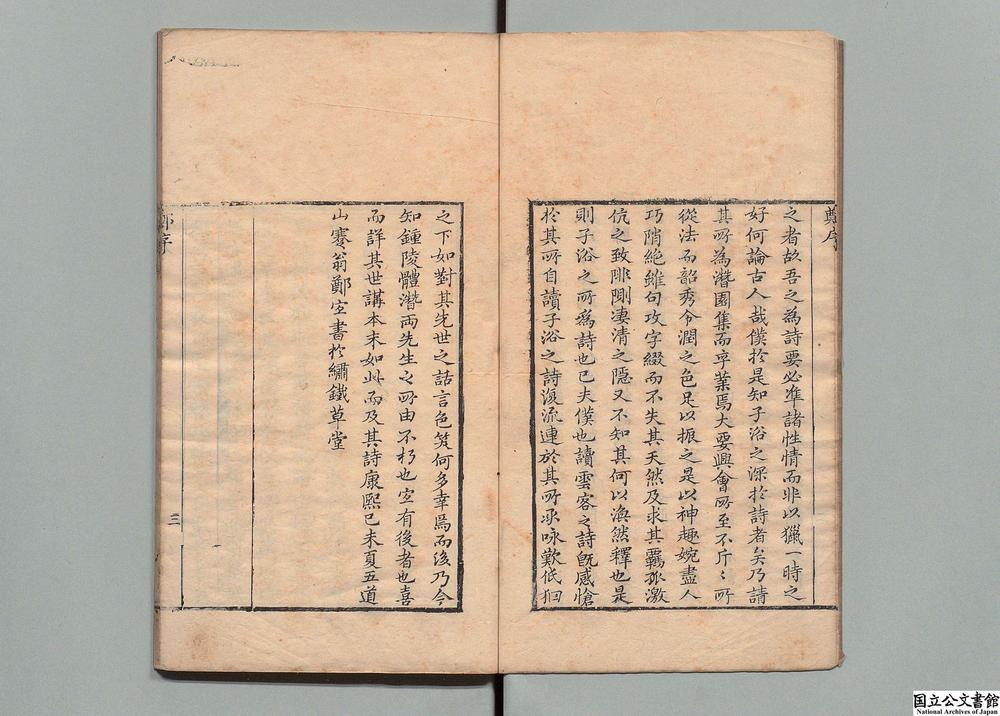 鄭序
之者故吾之為詩要必准諸性情而非以獵一時之
好何論古人哉僕於是知子浴之深於詩者矣乃請
其所為潛園集而卒業焉大要興會所至不斤〻所
從法而韶秀令潤之色足以振之是以神趣婉盡人
巧陗絶雖句攻字綴而不失其天然及求其羈孤激
伉之致陫惻凄清之隱又不知其何以渙然釋也是
則子浴之所爲詩也已夫僕也讀雲客之詩既感愴
於其所自讀子浴之詩復流連於其所承咏歎低徊
之下如對其先世之話言色笑何多幸焉而後乃今
知鍾陵體潛兩先生之所由不朽也宐有後者也喜
而詳其世講本末如此而及其詩康熙己未夏五道
山蹇翁鄭宐書於繡鐵草堂
鄭序
三
国立公文書館
National Archives of Japan